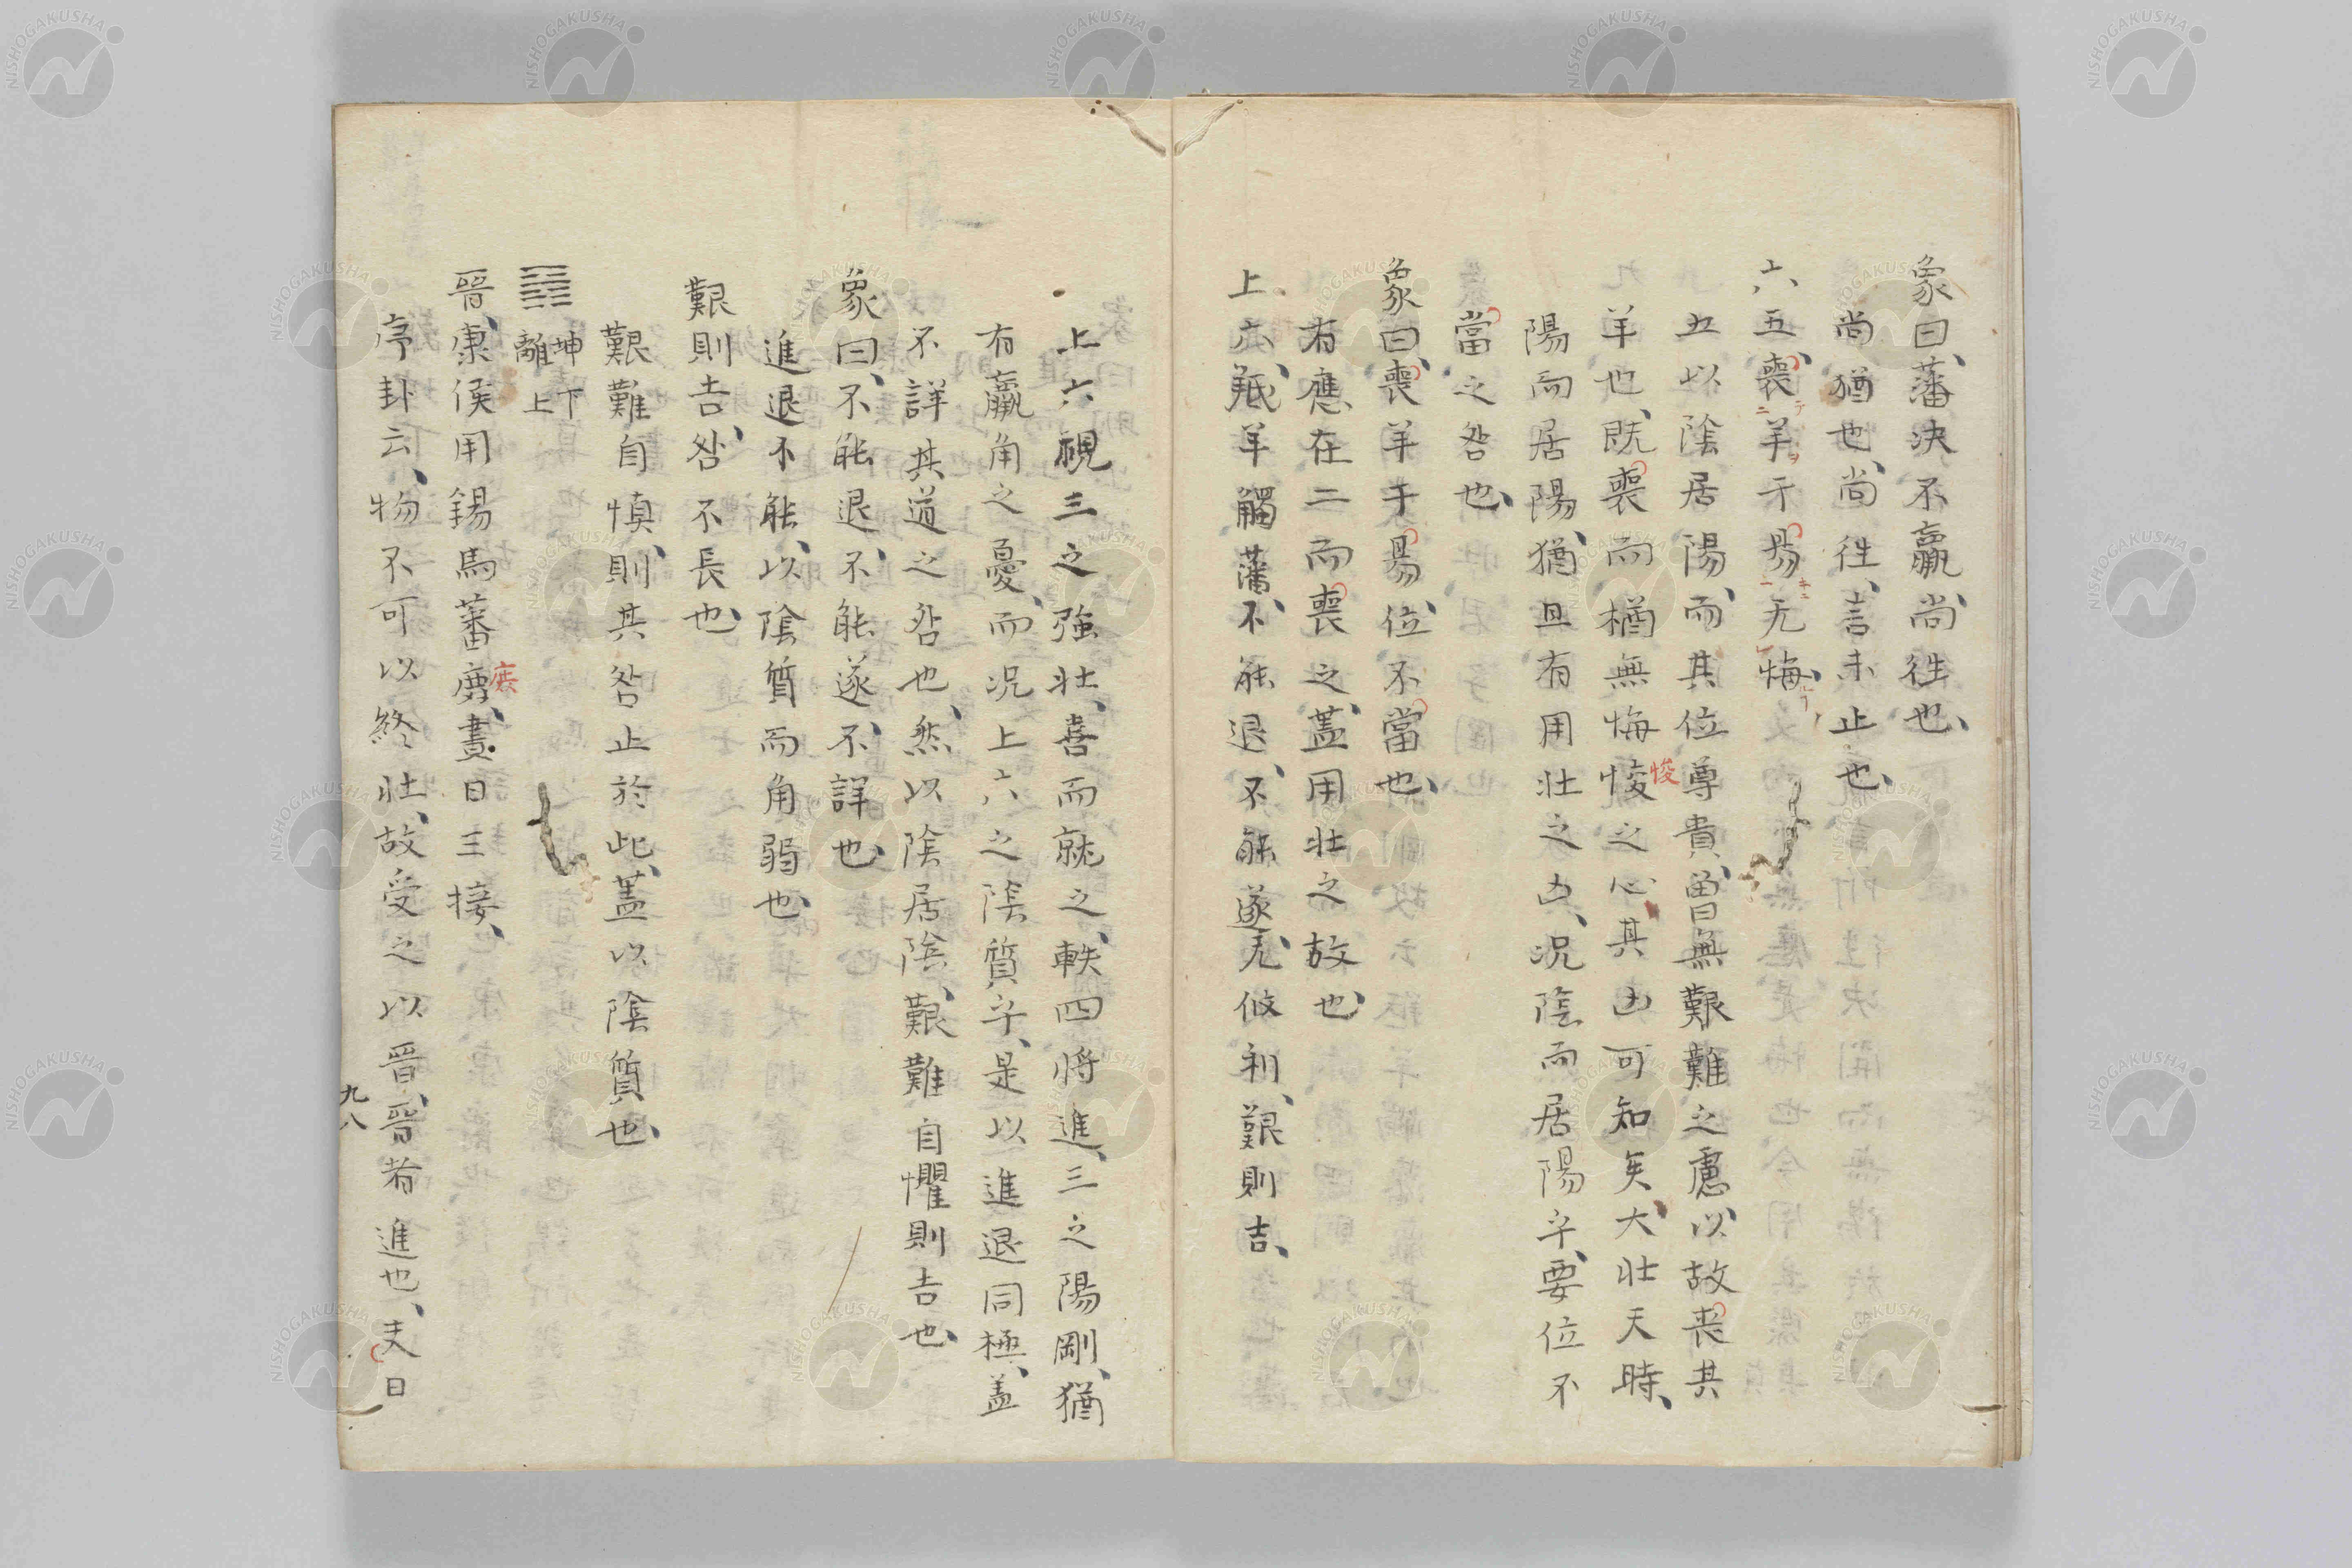 象曰、藩决不羸、尚徃也、
尚猶也、尚徃、言未止也、
六五、喪羊于易、无悔、
五以陰居陽、而其位尊貴、曽無艱難之慮、以故喪其
羊也、既喪而猶無悔悛之心、其凶可知矣、大壮天時、
悛
陽而居陽、猶且有用壮之凶、况陰而居陽乎、要位不
當之咎也、
象曰、喪羊于易、位不當也、
有應在二而喪之、蓋用壮之故也、
上六、羝羊觸藩、不能退、不能遂、无攸利、艱則吉、
上六視三之強壮、喜而就之、軼四将進、三之陽剛、猶
有羸角之憂、而况上六之陰質乎、是以進退同極、蓋
不詳其道之咎也、然以陰居陰、艱難自懼則吉也、
象曰、不能退、不能遂、不詳也、
進退不能、以陰質而角弱也、
艱則吉、咎不長也、
艱難自慎、則其咎止於此、蓋以陰質也、
䷢ 坤下
離上
晋、康侯用錫馬蕃庶、晝日三接、
庶
序卦云、物不可以終壮、故受之以晋、晋者進也、夫日
九八
NISHOGAKUSHA